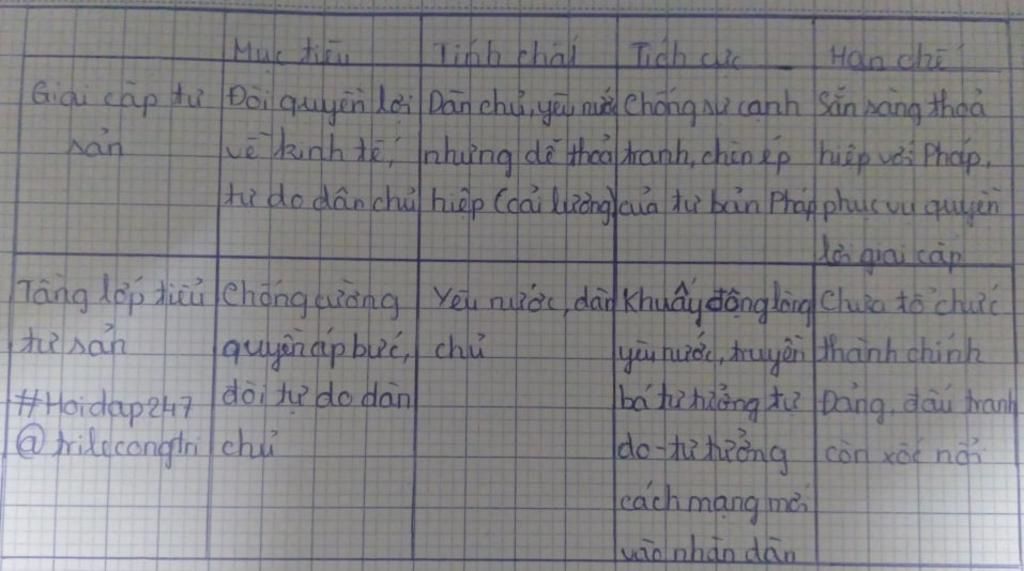 Mục tiêu
Tính chất
Tích cực
Hạn chế
Giai cấp tư
sản
Đòi quyền lợi
về kinh tế,
tự do dân chủ
Dân chủ, yêu nước
nhưng dễ thoả
hiệp (cải lương)
Chống sự cạnh
tranh, chèn ép
của tư bản Pháp
Sẵn sàng thoả
hiệp với Pháp,
phục vụ quyền
lợi giai cấp
Tầng lớp tiểu
tư sản
#Hoidap247
@trilocongtri
Chống cường
quyền áp bức,
đòi tự do dân
chủ
Yêu nước, dân
chủ
Khuấy động lòng
yêu nước, truyền
bá tư tưởng tự
do - tư tưởng
cách mạng mới
vào nhân dân
Chưa tổ chức
thành chính
Đảng, đấu tranh
còn xốc nổi